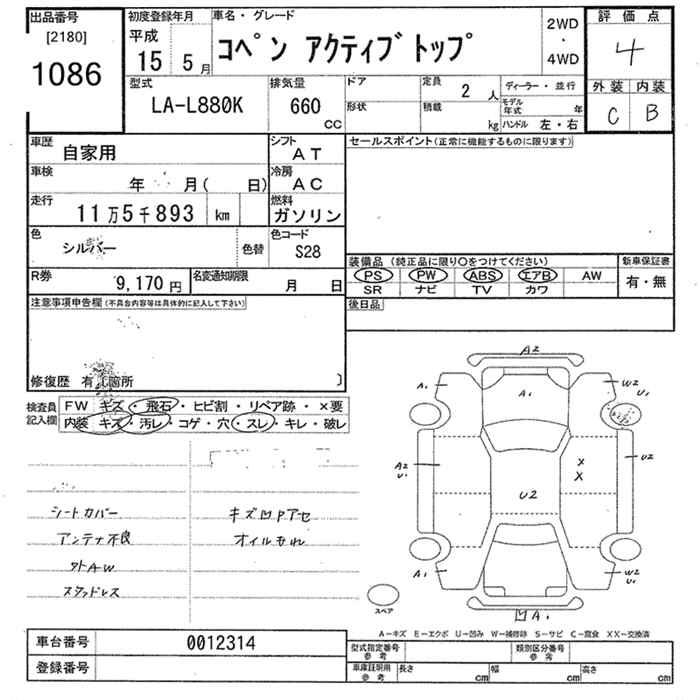 出品番号 初度登録年月 車名・グレード 2WD 評価点
[2180] 平成 ・
1086 15 5月 コペン アクティブトップ 4WD 4
型式 排気量 ドア 定員 2 人 ディーラー・並行 外装 内装
LA-L880K 660 cc 形状 積載 kg モデル年式 年 C B
ハンドル 左・右
車歴 自家用 シフト AT セールスポイント(正常に機能するものに限ります)
車検 年 月( 日) 冷房 AC
走行 11万5千893 km 燃料 ガソリン
色 シルバー 色替 色コード S28
装備品 (純正品に限り〇をつけてください) 新車保証書
R券 9,170円 名変通知期限 月 日 PS PW ABS エアB AW 有・無
SR ナビ TV カワ
注意事項申告欄(不具合内容等は具体的に記入して下さい) 後日品
修復歴 有 箇所
検査員 FW キズ・飛石・ヒビ割・リペア跡・×要
記入欄 内装 キズ・汚レ・コゲ・穴・スレ・キレ・破レ
A2
A1 A1 W2 U1
A2 U1 U2 X X
U2
A1 W2 U1
凹A1
シートカバー キズ凹Pアセ
アンテナ不良 オイルもれ
外AW
スタッドレス
スペア
A−キズ E−エクボ U−凹み W−補修跡 S−サビ C−腐食 XX−交換済
車台番号 0012314 型式指定番号 参考 類別区分番号 参考
登録番号 車庫証明用 参考 長さ cm 幅 cm 高さ cm